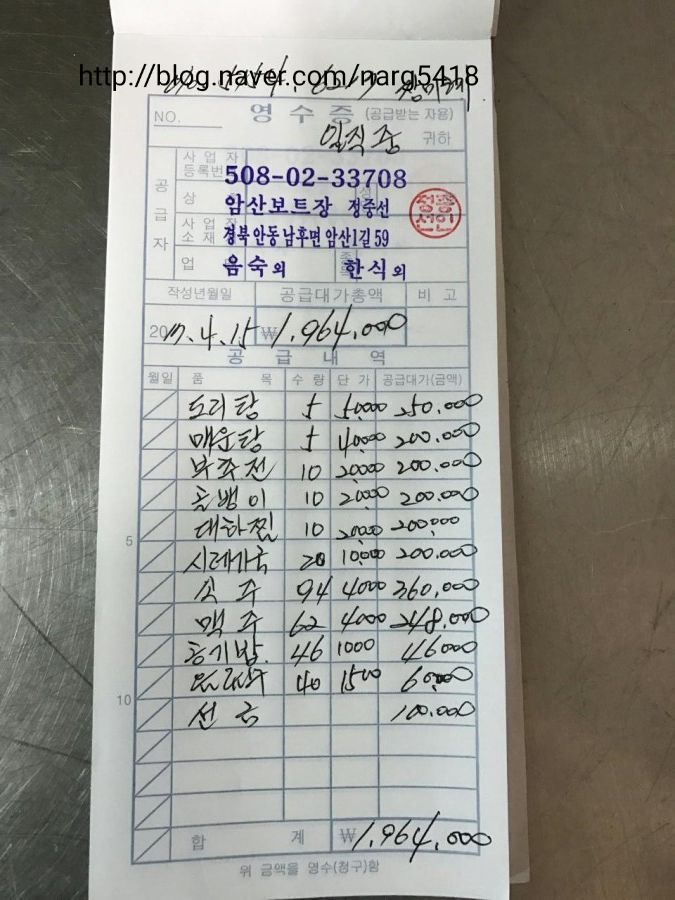 http://blog.naver.com/narg5418
NO.
영 수 증 (공급받는 자용)
일직중 귀하
공급자
사 업 자 등록번 508-02-33708
상 암산보트장 정중선
사 업 장 소 재 경북 안동 남후면 암산1길 59
업 음숙외 한식외
작성년월일 공급대가총액 비 고
2017.4.15 ₩1,964,000
공 급 내 역
월일 품 목 수 량 단 가 공급대가(금액)
도리탕 5 50000 250.000
매운탕 5 40000 200.000
부추전 10 20000 200.000
골뱅이 10 20000 200.000
대하찜 10 20000 200000
5
시레기국 20 10000 200.000
소주 94 4000 360,000
맥주 62 4000 248.000
공기밥. 46 1000 46000
음료수 40 1500 60000
10
선금 100.000
합 계 ₩1,964,000
위 금액을 영수(청구)함